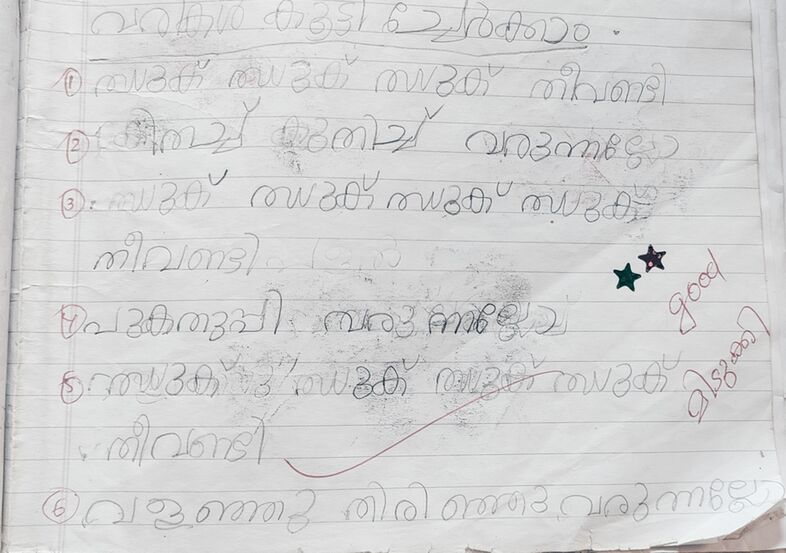 വരികൾ കൂട്ടിച്ചേർക്കാം.
① ഝുക് ഝുക് ഝുക് തീവണ്ടി
② കിതച്ച് കുതിച്ച് വരുന്നല്ലോ
③ ഝുക് ഝുക് ഝുക് ഝുക്
തീവണ്ടി
④ പുകതുപ്പി വരുന്നല്ലോ
good
⑤ ഝുക് ഝുക് ഝുക് ഝുക്
മിടുക്കി
തീവണ്ടി
⑥ വളഞ്ഞു തിരിഞ്ഞു വരുന്നല്ലോ